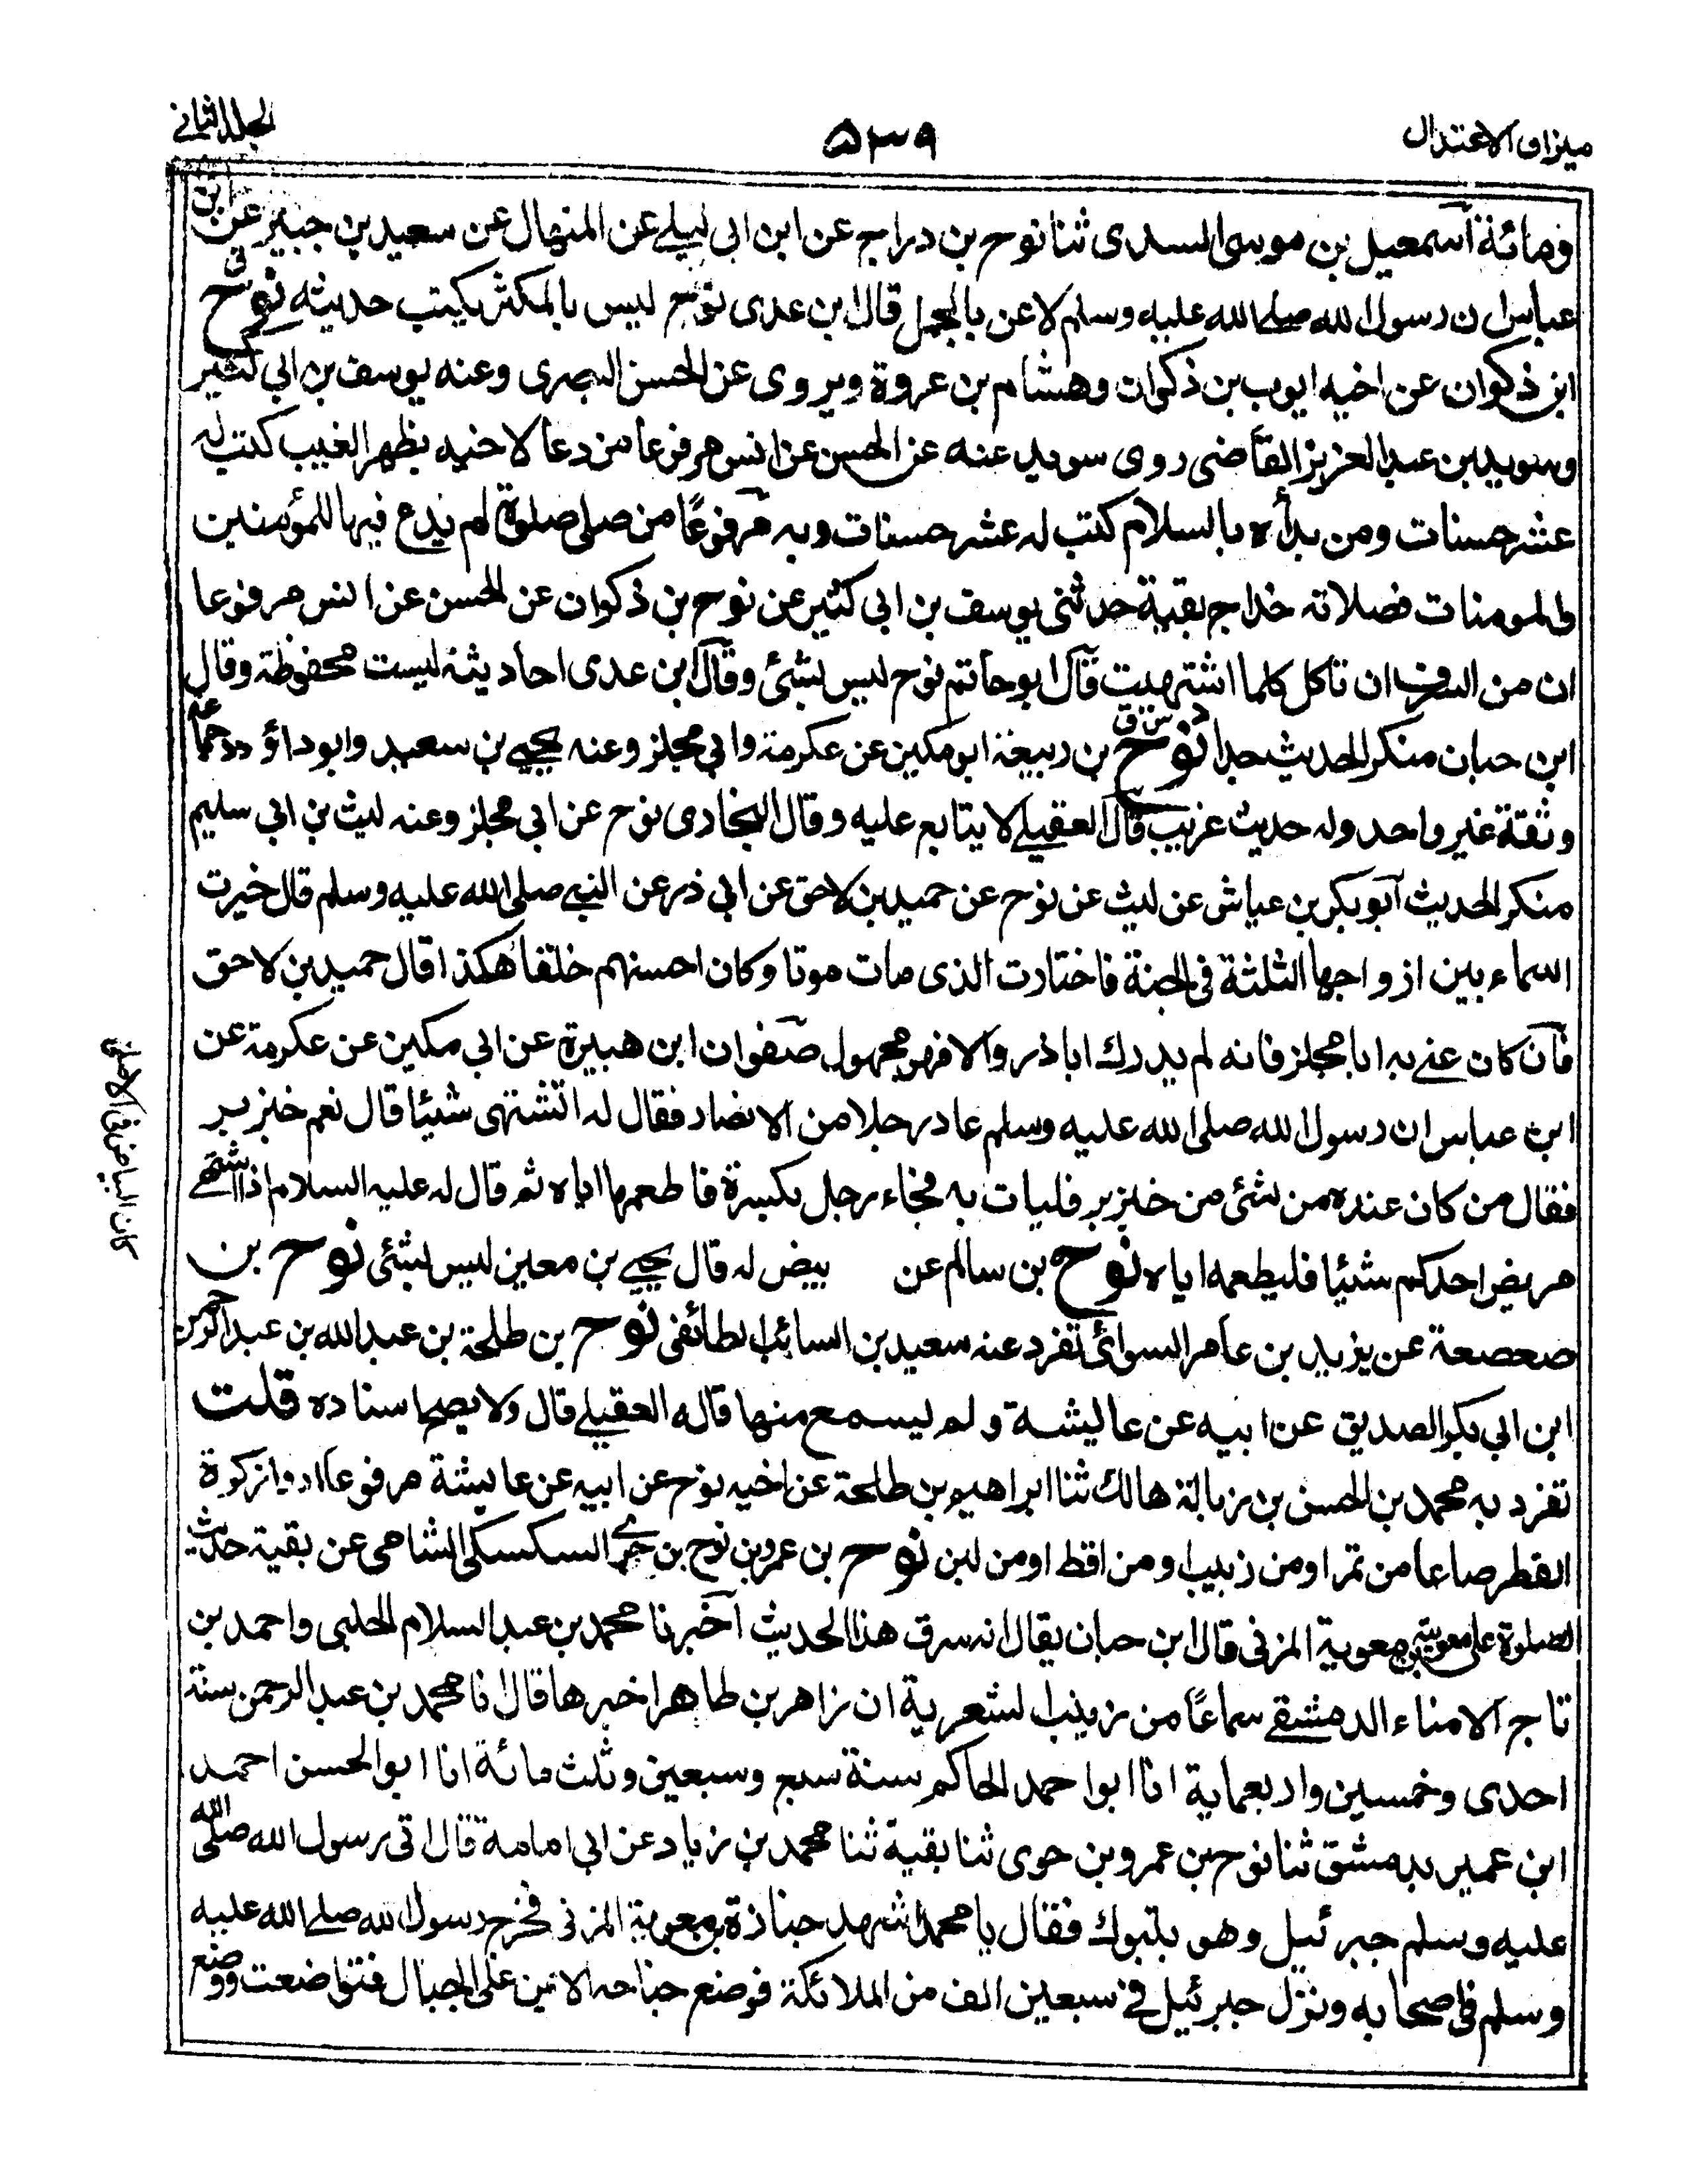 ميزان الاعتدال
٥٣٩
الجلد الثاني
ومائة اسمعيل بن موسى السدى ثنا نوح بن دراج عن ابن ابى ليلے عن المنهال عن سعيد بن جبير عن ابن
عباس ان رسول الله صلے الله عليه وسلم لاعن بالحمل قال ابن عدى نوح ليس بالمكثر يكتب حديثه نوح ق
ابن ذكوان عن اخيه ايوب بن ذكوان وهشام بن عروة ويروى عن الحسن البصرى وعنه يوسف بن ابي كثير
وسويد بن عبد العزيز القاضى روى سويد عنه عن الحسن عن انس مرفوعا من دعا لاخيه بظهر الغيب كتب له
عشر حسنات ومن بدأه بالسلام كتب له عشر حسنات وبه مرفوعًا من صلى صلوة لم يدع فيها للمؤمنين
والمومنات فصلاته خداج بقية حدثنى يوسف بن ابى كثير عن نوح بن ذكوان عن الحسن عن انس مرفوعا
ان من السرف ان تاكل كلما اشتهيت قال ابو حاتم نوح ليس بشئ وقال ابن عدى احاديثه ليست محفوظة وقال
ابن حبان منكر الحديث جدا نوح د س ق بن ربيعة ابو مكين عن عكرمة وابي مجلز وعنه يحيے بن سعيد وابو داؤد وجماعة
وثقة غير واحد وله حديث غريب قال العقيلے لا يتابع عليه وقال البخارى نوح عن ابي مجلز وعنه ليث بن ابي سليم
منكر الحديث ابو بكر بن عياش عن ليث عن نوح عن حميد بن لاحق عن ابي ذر عن النبے صلى الله عليه وسلم قال خيرت
اسماء بين ازواجها الثلثة فى الجنة فاختارت الذى مات موتا وكان احسنهم خلقا هكذا قال حميد بن لاحق
فان كان عنے به ابا مجلز فانه لم يدرك اباذر والا فهو مجهول صفوان ابن هبيرة عن ابي مكين عن عكرمة عن
ابن عباس ان رسول الله صلى الله عليه وسلم عاد رجلا من الانصار فقال له اتشتهى شيئا قال نعم خبز بر
فقال من كان عنده من شئ من خبز بر فليات به فجاء رجل بكسرة فاطعمها اياه ثم قال له عليه السلام اذا اشتهے
مريض احدكم شيئا فليطعمه اياه نوح بن سالم عن بيض له قال يحيے بن معين ليس بشئ نوح بن
صعصعة عن يزيد بن عامر السوائى تفرد عنه سعيد بن السائب الطائفى نوح بن طلحة بن عبد الله بن عبد الرحمن
ابن ابي بكر الصديق عن ابيه عن عايشة ولم يسمع منها قاله العقيلے قال ولا يصح اسناده قلت
تفرد به محمد بن الحسن بن زبالة هالك ثنا ابراهيم بن طلحة عن اخيه نوح عن ابيه عن عايشة مرفوعا ادوا زكوة
الفطر صاعا من تمر او من زبيب او من اقط او من لبن نوح بن عمرو بن نوح بن حوى السكسكى الشامى عن بقية حديث
الصلوة على معوية بن معوية المزنى قال ابن حبان يقال انه سرق هذا الحديث اخبرنا محمد بن عبد السلام الحلبى واحمد بن
تاج الامناء الدمشقے سماعًا من زينب الشعرية ان زاهر بن طاهر اخبرها قال انا محمد بن عبد الرحمن سنة
احدى وخمسين واربعماية انا ابو احمد الحاكم سنة سبع وسبعين وثلث مائة انا ابو الحسن احمد
ابن عمير بدمشق ثنا نوح بن عمرو بن حوى ثنا بقية ثنا محمد بن زياد عن ابي امامة قال اتى رسول الله صلى الله
عليه وسلم جبرئيل وهو بتبوك فقال يا محمد اشهد جنازة معوية المزنى فخرج رسول الله صلے الله عليه
وسلم فى اصحابه ونزل جبرئيل فے سبعين الف من الملائكة فوضع جناحه الايمن على الجبال فتواضعت ووضع
كان البياض فى الاصل